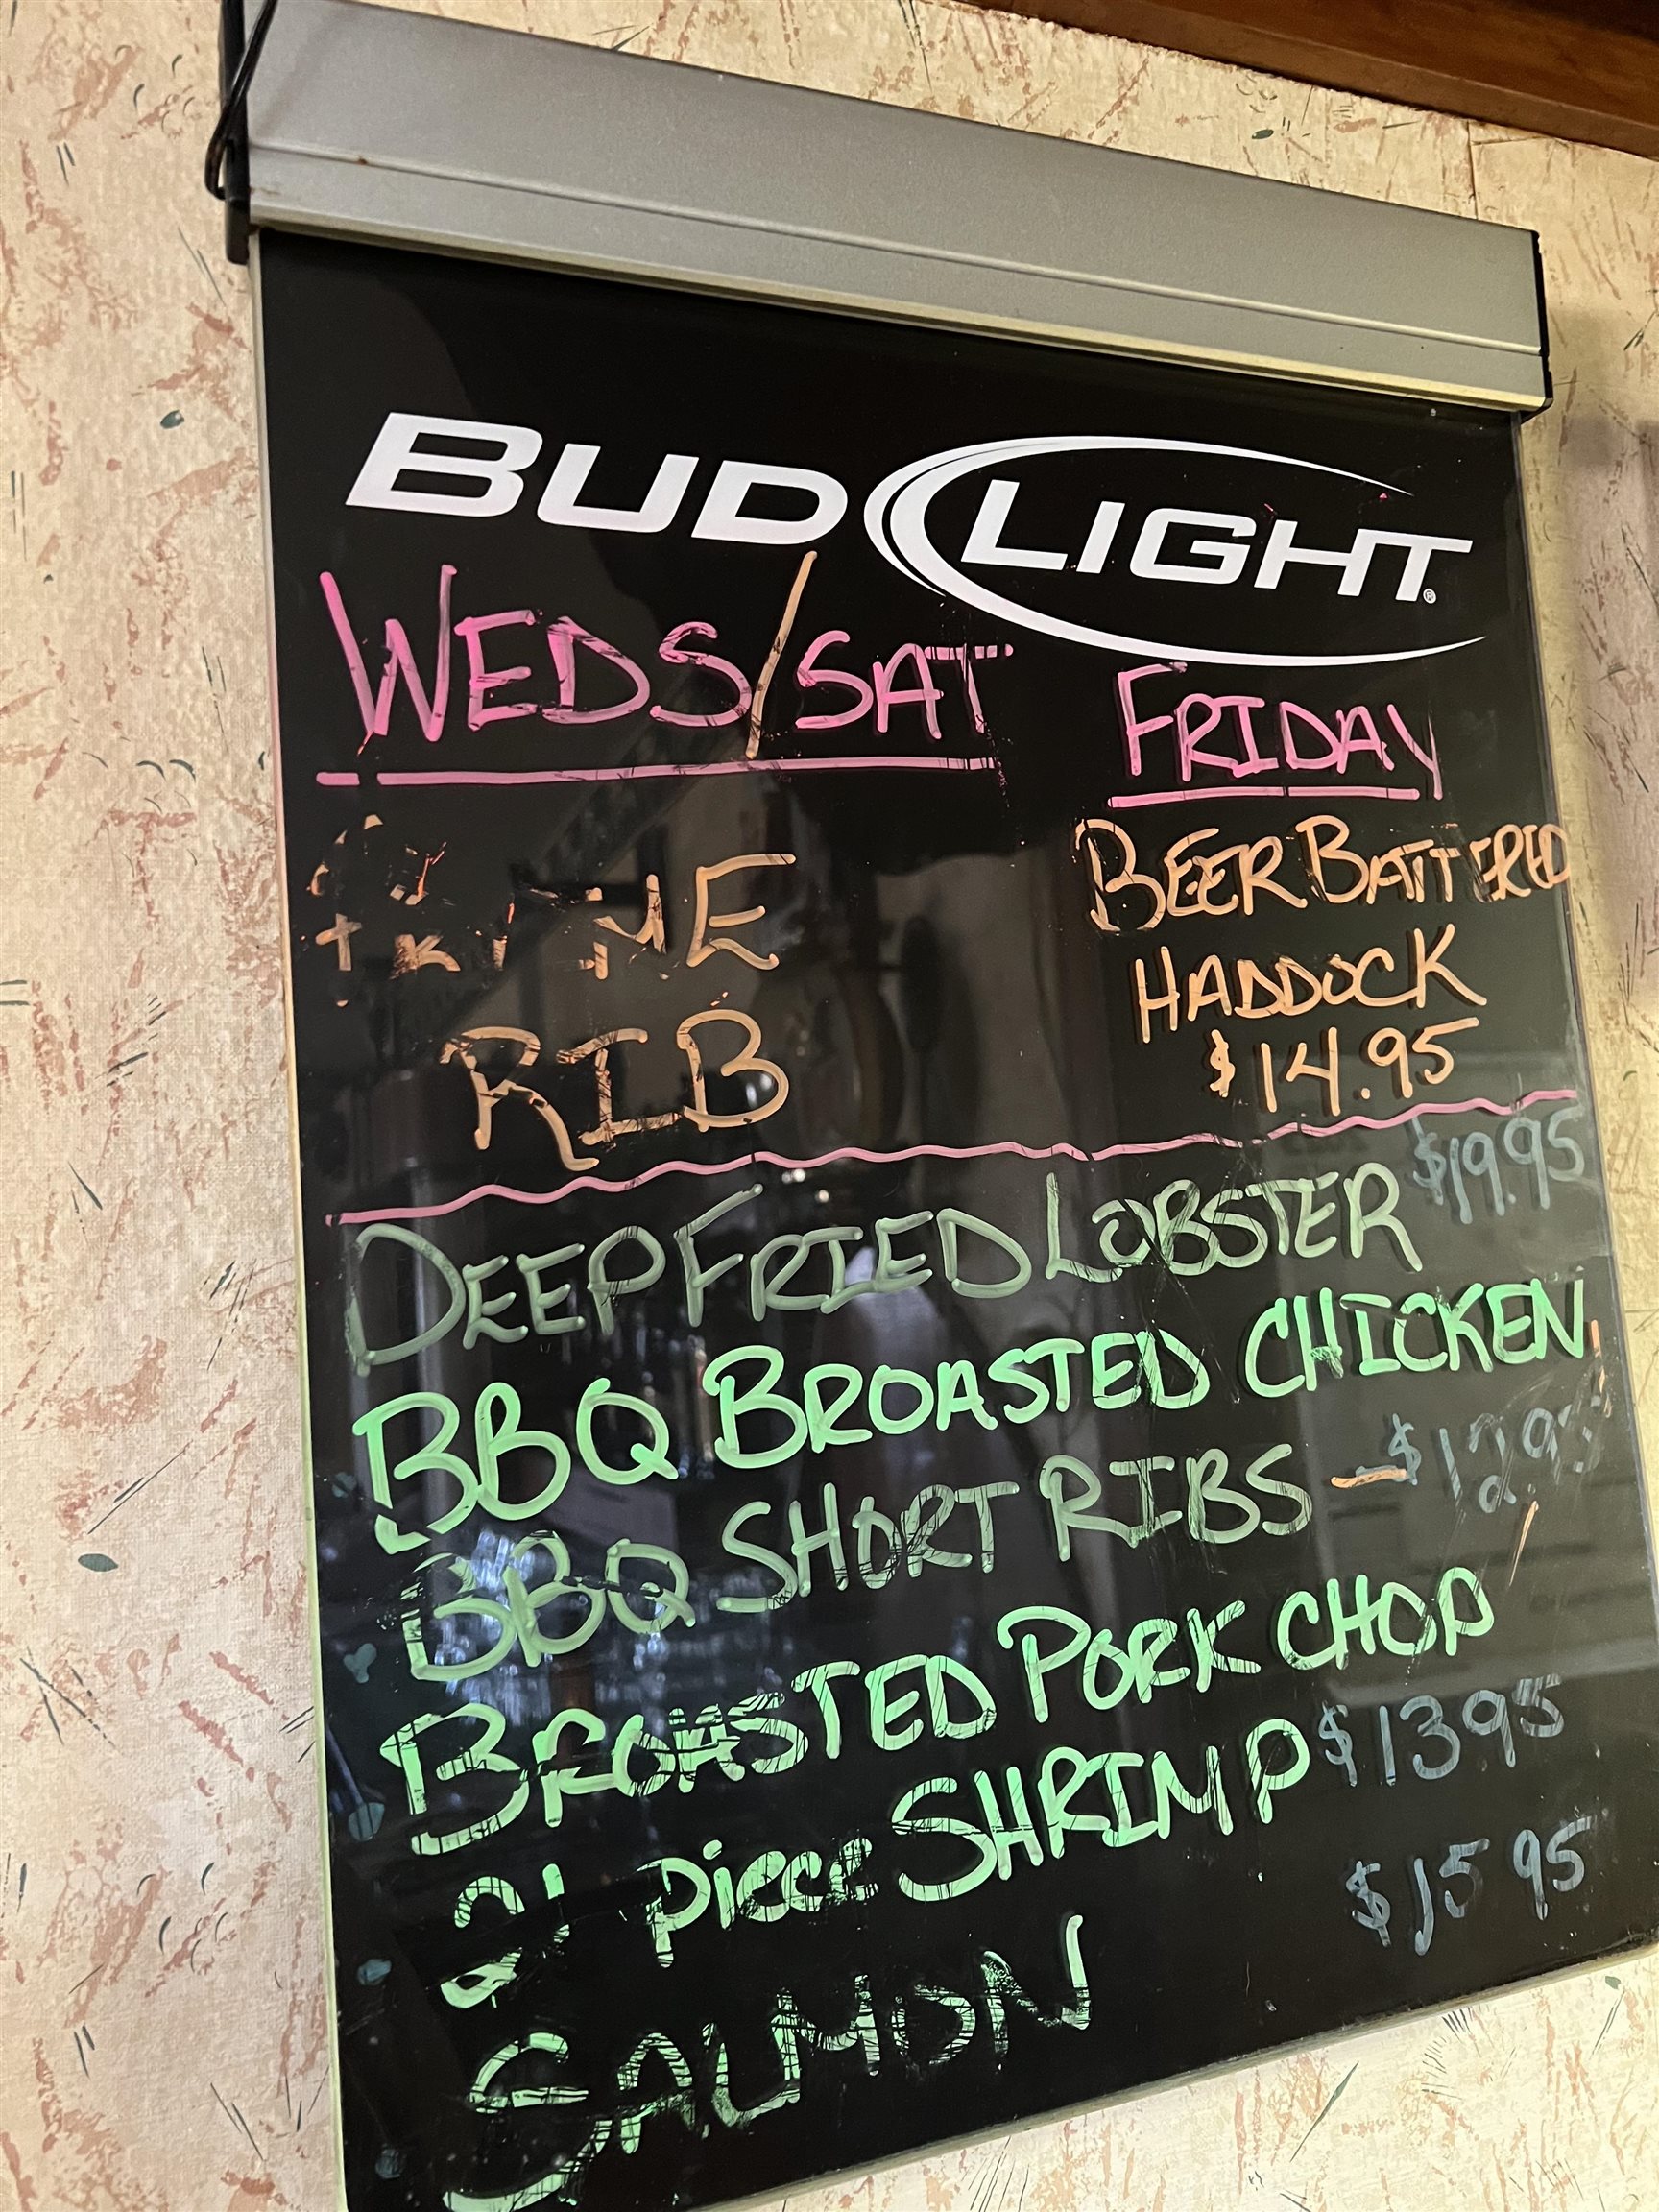 BUD LIGHT
WEDS/SAT
FRIDAY
PRIME
RIB
BEER BATTERED
HADDOCK
$14.95
DEEP FRIED LOBSTER $19.95
BBQ BROASTED CHICKEN
BBQ SHORT RIBS - $12.95
BROASTED PORK CHOP
21 piece SHRIMP $13.95
$15.95
SALMON